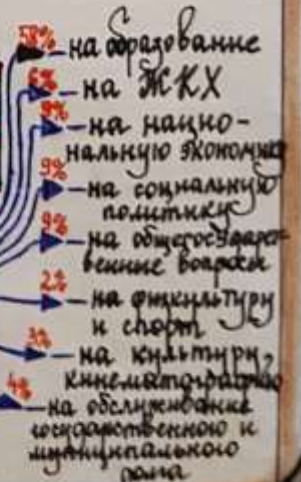 58% – на образование
6% – на ЖКХ
9% – на нацио-
нальную экономику
9% – на социальную
политику
9% – на общегосударст-
венные вопросы
2% – на физкультуру
и спорт
3% – на культуру,
кинематографию
4% – на обслуживание
государственного и
муниципального
долга